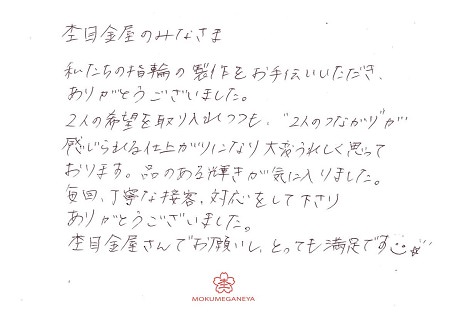 杢目金屋のみなさま
私たちの指輪の製作をお手伝いいただき、
ありがとうございました。
2人の希望を取り入れつつも、"2人のつながり"が
感じられる仕上がりになり大変うれしく思って
おります。品のある輝きが気に入りました。
毎回、丁寧な接客、対応をして下さり
ありがとうございました。
杢目金屋さんでお願いし、とっても満足です
MOKUMEGANEYA